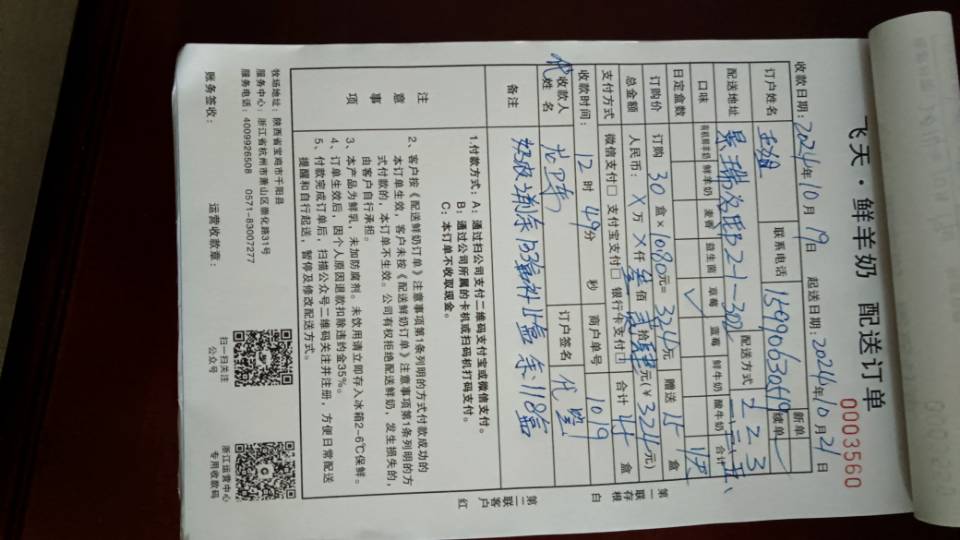 飞天·鲜羊奶 配送订单
0003560
收款日期：2024年10月19日 起送日期：2024年10月21日
订户姓名 联系电话 新单 续单
配送地址 2-1-302 配送方式 2 2 3
口味 有机鲜羊奶 鲜羊奶 麦香 益生菌 草莓 蓝莓 鲜牛奶 酸牛奶 合计
日定盒数 ✓
订购价 订购 30 盒×1080元=324元 赠送 15 盒
总金额 人民币：X万X仟叁佰贰拾肆元(￥324元)
支付方式 微信支付□ 支付宝支付□ 银行卡支付□ 合计 盒
收款时间： 12时49分 秒 商户单号 1019
收款人姓名 代 订户签名 代签
备注 余:118盒
注意事项
1.付款方式：A：通过扫公司支付二维码支付宝或微信支付。
B：通过公司所属的卡机或扫码机打码支付。
C：本订单不收取现金。
2、客户按《配送鲜奶订单》注意事项第1条列明的方式付款成功的
本订单生效，客户未按《配送鲜奶订单》注意事项第1条列明的方
式付款的，本订单不生效。公司有权拒绝配送鲜奶，发生损失的，
由客户自行承担。
3、本产品为鲜乳，未加防腐剂。未饮用请立即存入冰箱2-6℃保鲜。
4、订单生效后，因个人原因退款扣除违约金35%。
5、付款完成订单后，扫描公众号二维码关注并注册，方便日常配送
提醒和自行起送，暂停及修改配送方式。
第一联 存根 白
第二联 客户 红
牧场地址：陕西省宝鸡市千阳县
服务中心：浙江省杭州市萧山区崇化路31号
服务电话：4009926508 0571-83007277
账务签收： 运营收款章：
扫一扫关注
公众号
浙江运营中心
专用收款码